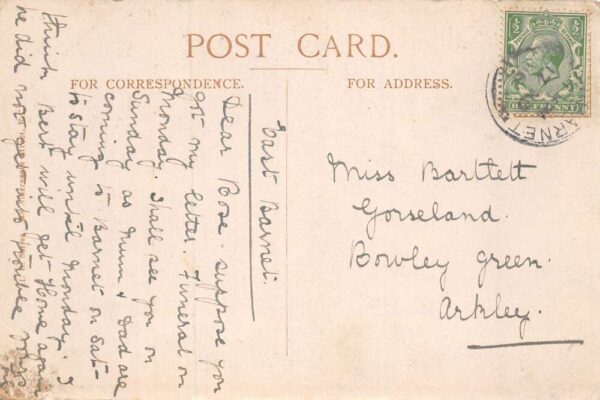 POST CARD.
FOR CORRESPONDENCE.
FOR ADDRESS.
East Barnet.
Dear Rose. suppose you
got my letter Funeral on
Monday. Shall see you on
Sunday as Mum & Dad are
coming to Barnet on Sat-
to stay until Monday. I
think Bert will get Home again
he did not get into trouble yours
Miss Bartlett
Gorseland.
Bowley Green.
Arkley.
½ ½
BARNET